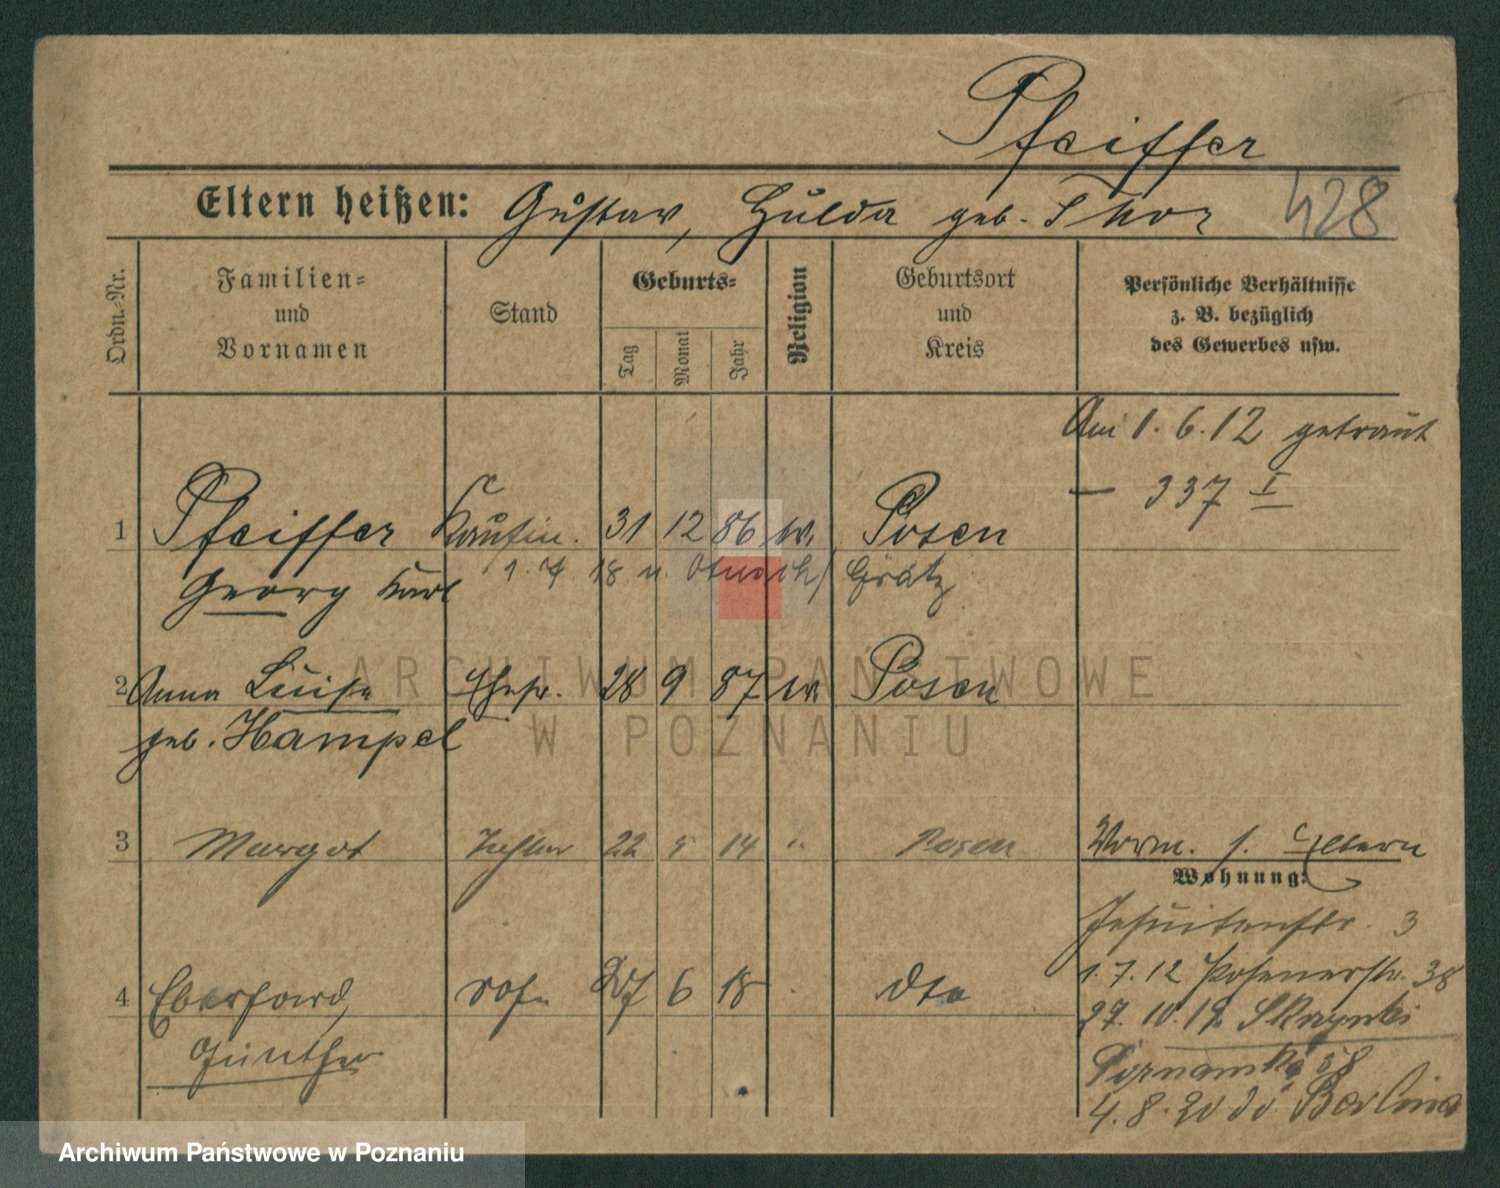 Pfeiffer
Eltern heißen: Gustav, Hulda geb. Thor
428
Ordn.-Nr.
Familien- und Vornamen
Stand
Geburts-
Tag
Monat
Jahr
Religion
Geburtsort und Kreis
Persönliche Verhältnisse z. B. bezüglich des Gewerbes usw.
Am 1. 6. 12 getraut
— 337 I
1 Pfeiffer Kaufm. 31 12 86 ev. Posen
Georg Karl 1. 7. 18 n. Grätz
2 Anna Luise Ehefr. 28 9 87 ev. Posen
geb. Hampel
3 Margot Tochter 22 5 14 " Posen
Vorm. s. Eltern
Wohnung:
Jesuitenstr. 3
4 Eberhard Sohn 27 6 18 dto
Günther
1. 7. 12 Posenerstr. 38
27. 10. 19
4. 8. 20 Berlin
ARCHIWUM PAŃSTWOWE
W POZNANIU
Archiwum Państwowe w Poznaniu